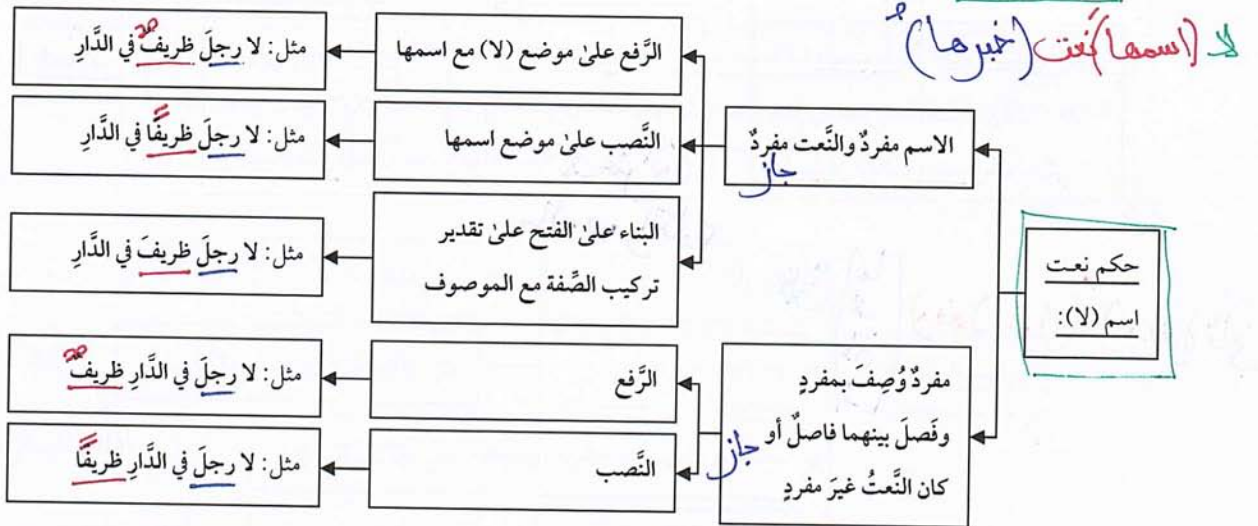 لا (اسمها) نعت (خبرها)
حكم نعت
اسم (لا):
الاسم مفردٌ والنَّعت مفردٌ
جاز
الرَّفع علىٰ موضع (لا) مع اسمها
مثل: لا رجلَ ظريفٌ في الدَّارِ
النَّصب علىٰ موضع اسمها
مثل: لا رجلَ ظريفًا في الدَّارِ
البناء علىٰ الفتح علىٰ تقدير
تركيب الصِّفة مع الموصوف
مثل: لا رجلَ ظريفَ في الدَّارِ
مفردٌ وُصِفَ بمفردٍ
وفَصلَ بينهما فاصلٌ أو
كان النَّعتُ غيرَ مفردٍ
جاز
الرَّفع
مثل: لا رجلَ في الدَّارِ ظريفٌ
النَّصب
مثل: لا رجلَ في الدَّارِ ظريفًا